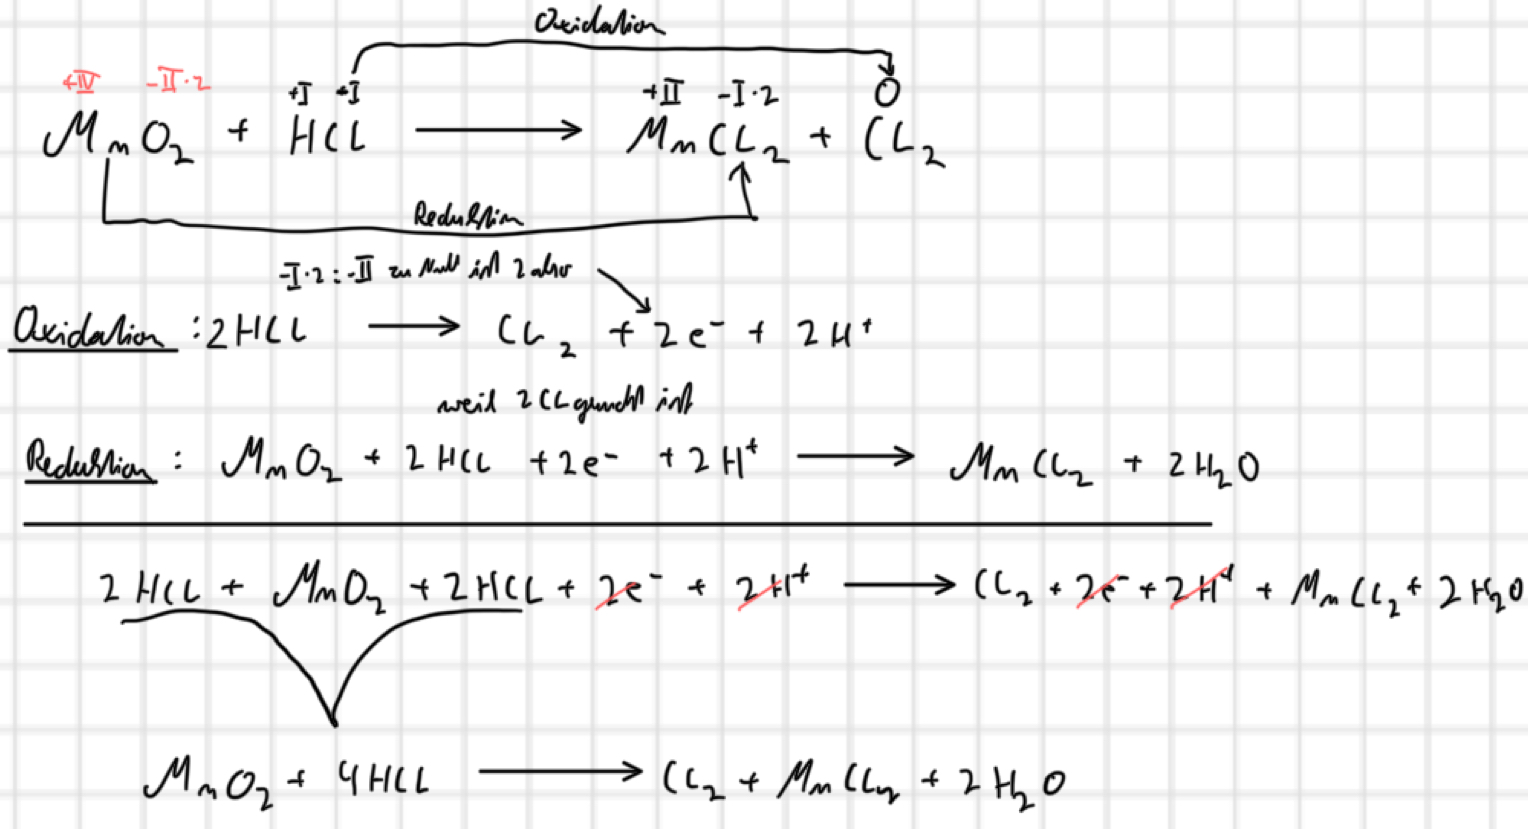 Oxidation
+IV -II·2 +I -I +II -I·2 0
MnO₂ + HCL ⟶ MnCL₂ + CL₂
Reduktion
-I·2 : -II zu Null ist 2 also
Oxidation : 2HCL ⟶ CL₂ + 2e⁻ + 2H⁺
weil 2CL gemacht ist
Reduktion : MnO₂ + 2HCL + 2e⁻ + 2H⁺ ⟶ MnCL₂ + 2H₂O
2HCL + MnO₂ + 2HCL + 2e⁻ + 2H⁺ ⟶ CL₂ + 2e⁻ + 2H⁺ + MnCL₂ + 2H₂O
MnO₂ + 4HCL ⟶ CL₂ + MnCL₂ + 2H₂O